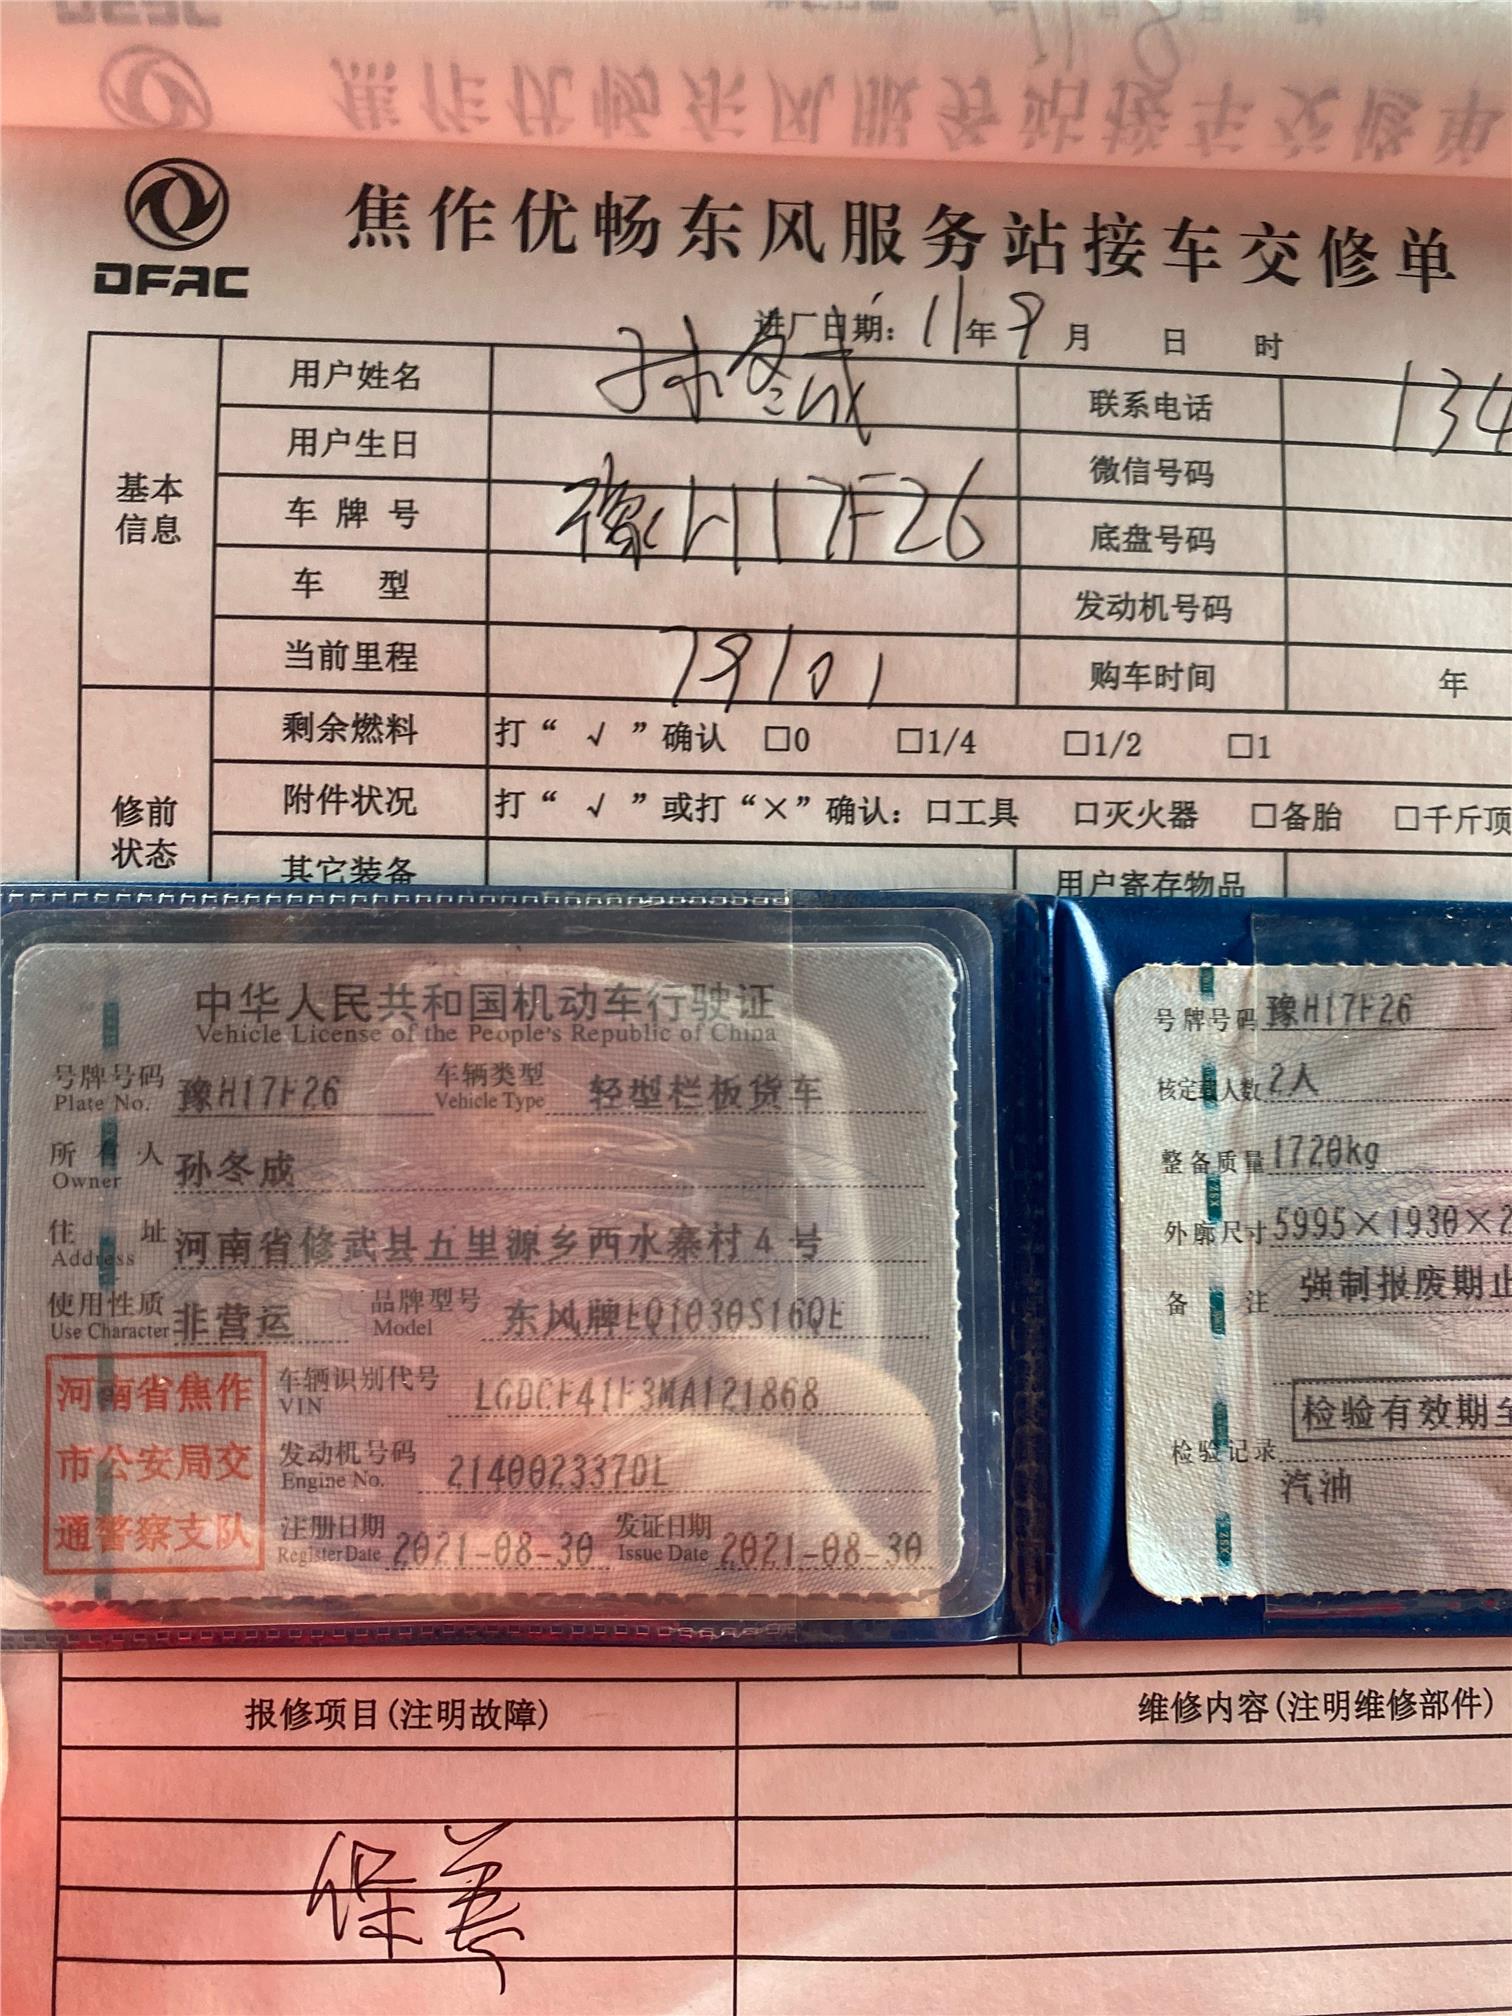 焦作优畅东风服务站接车交修单
DFAC
焦作优畅东风服务站接车交修单
进厂日期：11年9月 日 时
基本信息
用户姓名 孙冬成 联系电话 134
用户生日 微信号码
车牌号 豫H17F26 底盘号码
车型 发动机号码
当前里程 79101 购车时间 年
修前状态
剩余燃料 打“√”确认 □0 □1/4 □1/2 □1
附件状况 打“√”或打“×”确认：□工具 □灭火器 □备胎 □千斤顶
其它装备 用户寄存物品
中华人民共和国机动车行驶证
Vehicle License of the People's Republic of China
号牌号码 豫H17F26 车辆类型 轻型栏板货车
Plate No. Vehicle Type
所有人 孙冬成
Owner
住址 河南省修武县五里源乡西水寨村4号
Address
使用性质 非营运 品牌型号 东风牌EQ1030S16QE
Use Character Model
河南省焦作市公安局交通警察支队
车辆识别代号 LGDCF41F3MA121868
VIN
发动机号码 214002337DL
Engine No.
注册日期 2021-08-30 发证日期 2021-08-30
Register Date Issue Date
号牌号码 豫H17F26
核定载人数 2人
整备质量 1720kg
外廓尺寸 5995×1930×2
备注 强制报废期止
检验有效期至
检验记录
汽油
报修项目(注明故障) 维修内容(注明维修部件)
保养